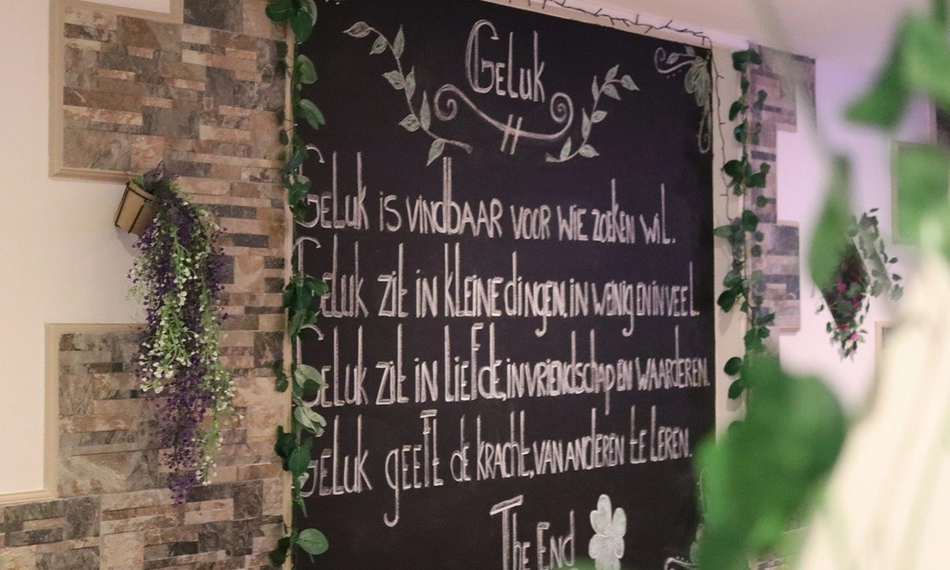 Geluk
Geluk is vindbaar voor wie zoeken wil.
Geluk zit in kleine dingen, in weinig en in veel.
Geluk zit in liefde, in vriendschap en waarderen.
Geluk geeft de kracht, van anderen te leren.
The End